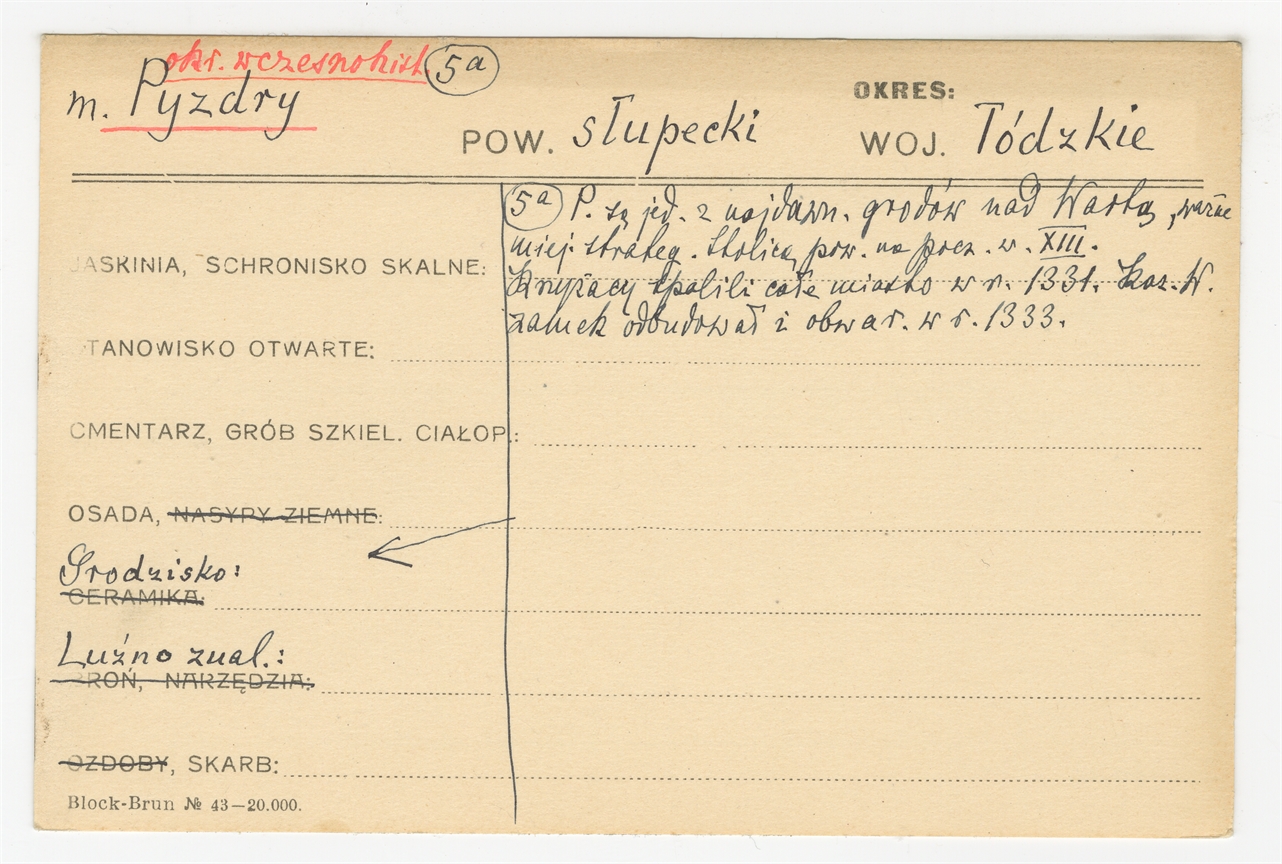 okr. wczesnohist. 5a
m. Pyzdry
OKRES:
POW. słupecki WOJ. Łódzkie
5a P. są jed. z najdawn. grodów nad Wartą, ważne
miej. strateg. Stolicą pow. na pocz. w. XIII.
JASKINIA, SCHRONISKO SKALNE:
Krzyżacy spalili całe miasto w r. 1331. Kaz. W.
zamek odbudował i obwar. w r. 1333.
STANOWISKO OTWARTE:
CMENTARZ, GRÓB SZKIEL. CIAŁOP.:
OSADA, NASYPY ZIEMNE:
Grodzisko:
CERAMIKA:
Luźno znal.:
BROŃ, NARZĘDZIA:
OZDOBY, SKARB:
Block-Brun № 43—20.000.